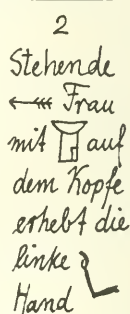 2
Stehende
Frau
mit auf
dem Kopfe
erhebt die
linke
Hand